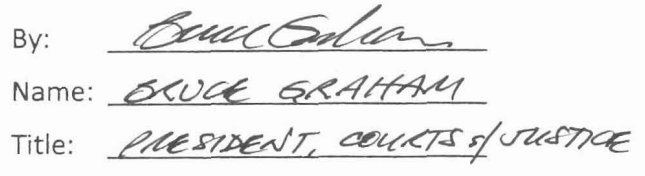 By: Bruce Graham
Name: BRUCE GRAHAM
Title: PRESIDENT, COURTS & JUSTICE